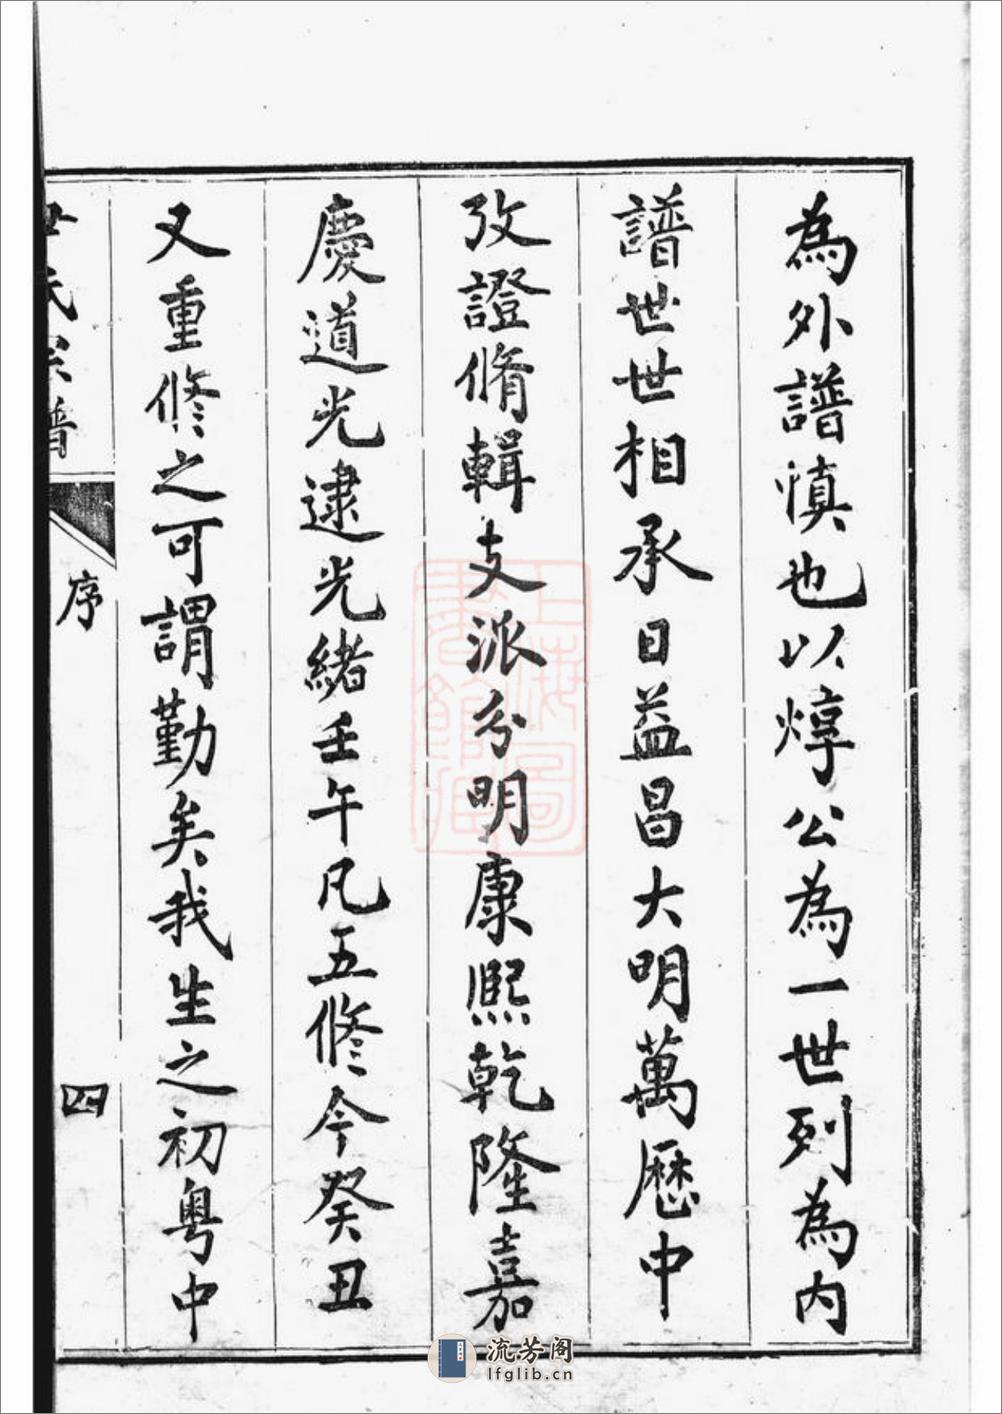 為外譜慎也以焞公為一世列為內
譜世世相承日益昌大明萬歷中
攷證脩輯支派分明康熙乾隆嘉
慶道光逮光緒壬午凡五修今癸丑
又重修之可謂勤矣我生之初粵中
氏宗譜
序
四
上海圖書館藏
流芳阁
lfglib.cn